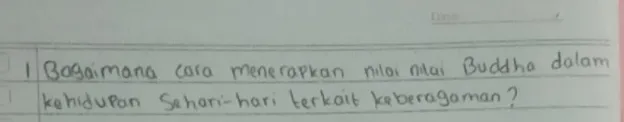 1 Bagaimana cara menerapkan nilai nilai Buddha dalam
kehidupan Sehari-hari terkait keberagaman?